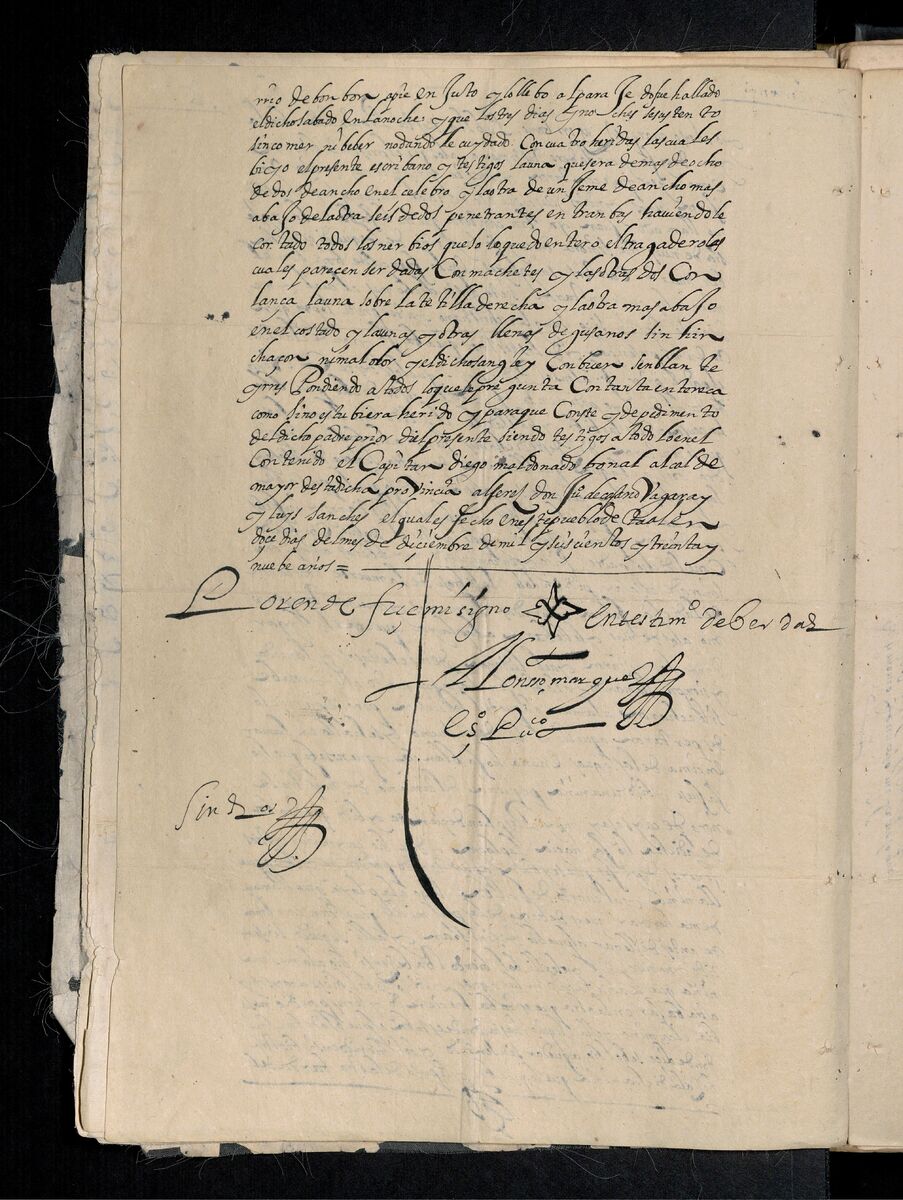 rrio de bonbon a pie enJuto y lo llebo al paraJe do fue hallado
el dicho sabado en la noche y que los tres dias y noches se sustento
sin comer ni beber no dandole cuydado. Con cuatro heridas las cuales
bi yo el presente escribano y testigos la una que sera de mas de ocho
dedos de ancho en el celebro y la otra de un Jeme de ancho mas
abaJo de la otra seis dedos penetrantes entranbas haviendole
cortado todos los nerbios que solo quedo entero el tragadero las
cuales pareçen ser dadas Con machetes y las otras dos Con
lança la una sobre la tetilla derecha y la otra mas abaJo
en el costado y las unas y otras llenas de gusanos sin hin
chaçon ni mal olor y el dicho sangley Con buen senblante
y rrespondiendo a todo lo que se le pregunta Con tanta entereça
como si no estubiera herido y para que Conste y de pedimento
del dicho padre prior di el presente siendo testigos a todo lo en el
Contenido el Capitan diego maldonado bonal alcalde
mayor desta dicha provincia alferes don Ju° de Vagara y
y luys sanches el qual es fecho en este pueblo de Taal en
doçe dias del mes de diçiembre de mil y seisçientos y treinta y
nuebe años =
Por ende fiçe mi signo en testim° de Berdad
Alonso marques
Es° Puco
Sin d°s